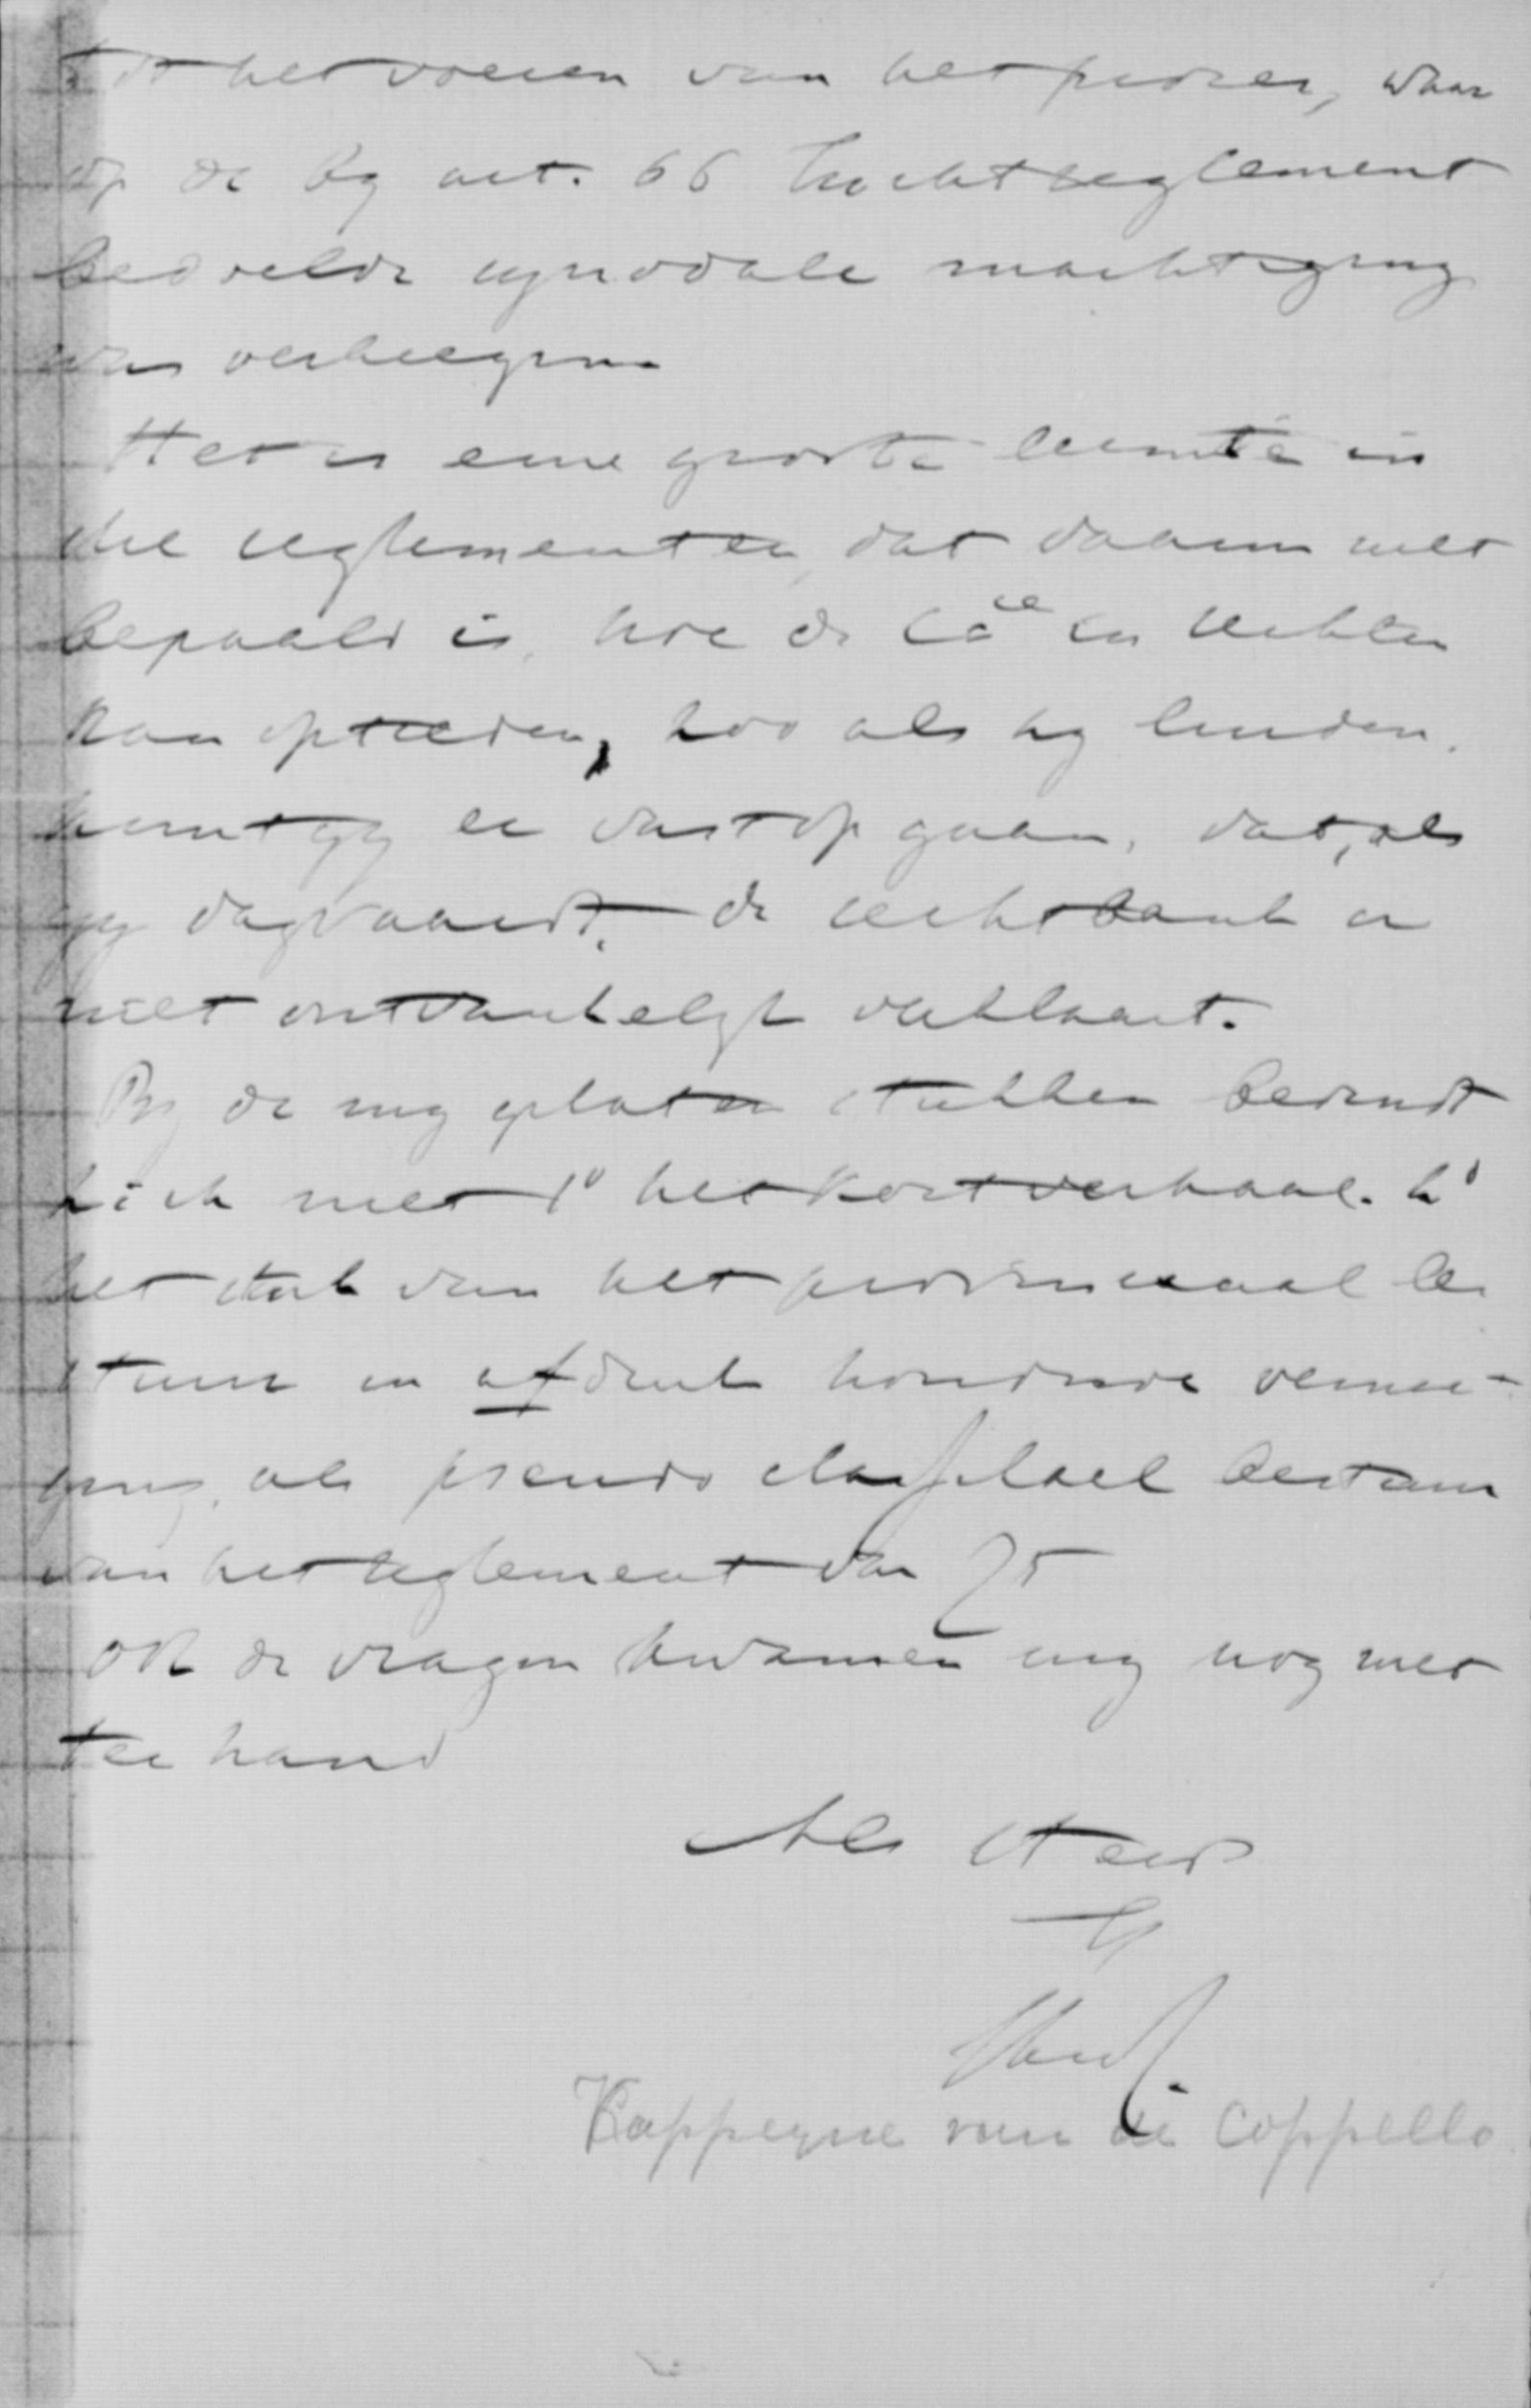 tot het voeren van het proces, waar
op de by art. 66 Tuchtreglement
bedoelde synodale machtiging
was verkregen.
Het is eene groote leemte in
die reglementen, dat daarin niet
bepaald is, hoe de Cie in rechten
kan optreden, zoo als zy luiden,
kunt gy er vast op gaan, dat, als
gy dagvaardt, de rechtbank u
niet ontvankelyk verklaart.
By de my gelaten stukken bevindt
zich niet 1o het kort verhaal. 2o
het stuk van het provinciaal be
stuur in afdruk houdende vernie-
ging, als pseudo bestaan
van het reglement van 75
ook de vragen kwamen my nog niet
ter hand
Als steeds
Kappeyne van de Coppello